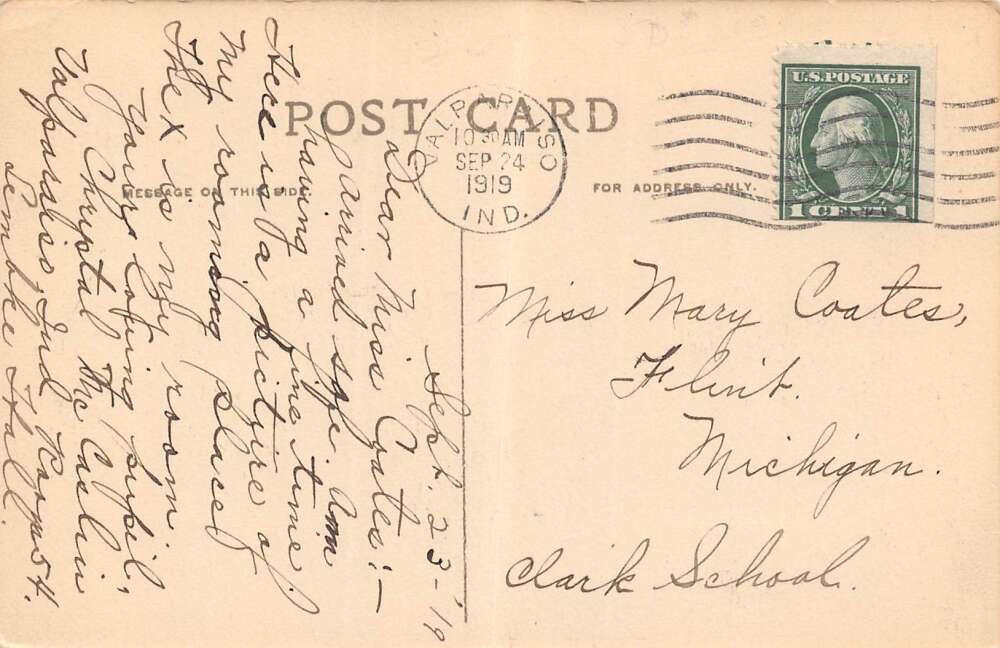 POST CARD
MESSAGE ON THIS SIDE.
FOR ADDRESS ONLY.
VALPARAISO
10 30 AM
SEP 24
1919
IND.
U.S. POSTAGE
1 CENT 1
Miss Mary Coates,
Flint.
Michigan.
Clark School.
Sept. 23-'19
Dear Miss Coates:-
I arrived safe. Am
having a fine time.
Here is a picture of
my rooming place
The X is my room.
Your loving pupil,
Valparaiso, Ind Room 54.
Lembke Hall.